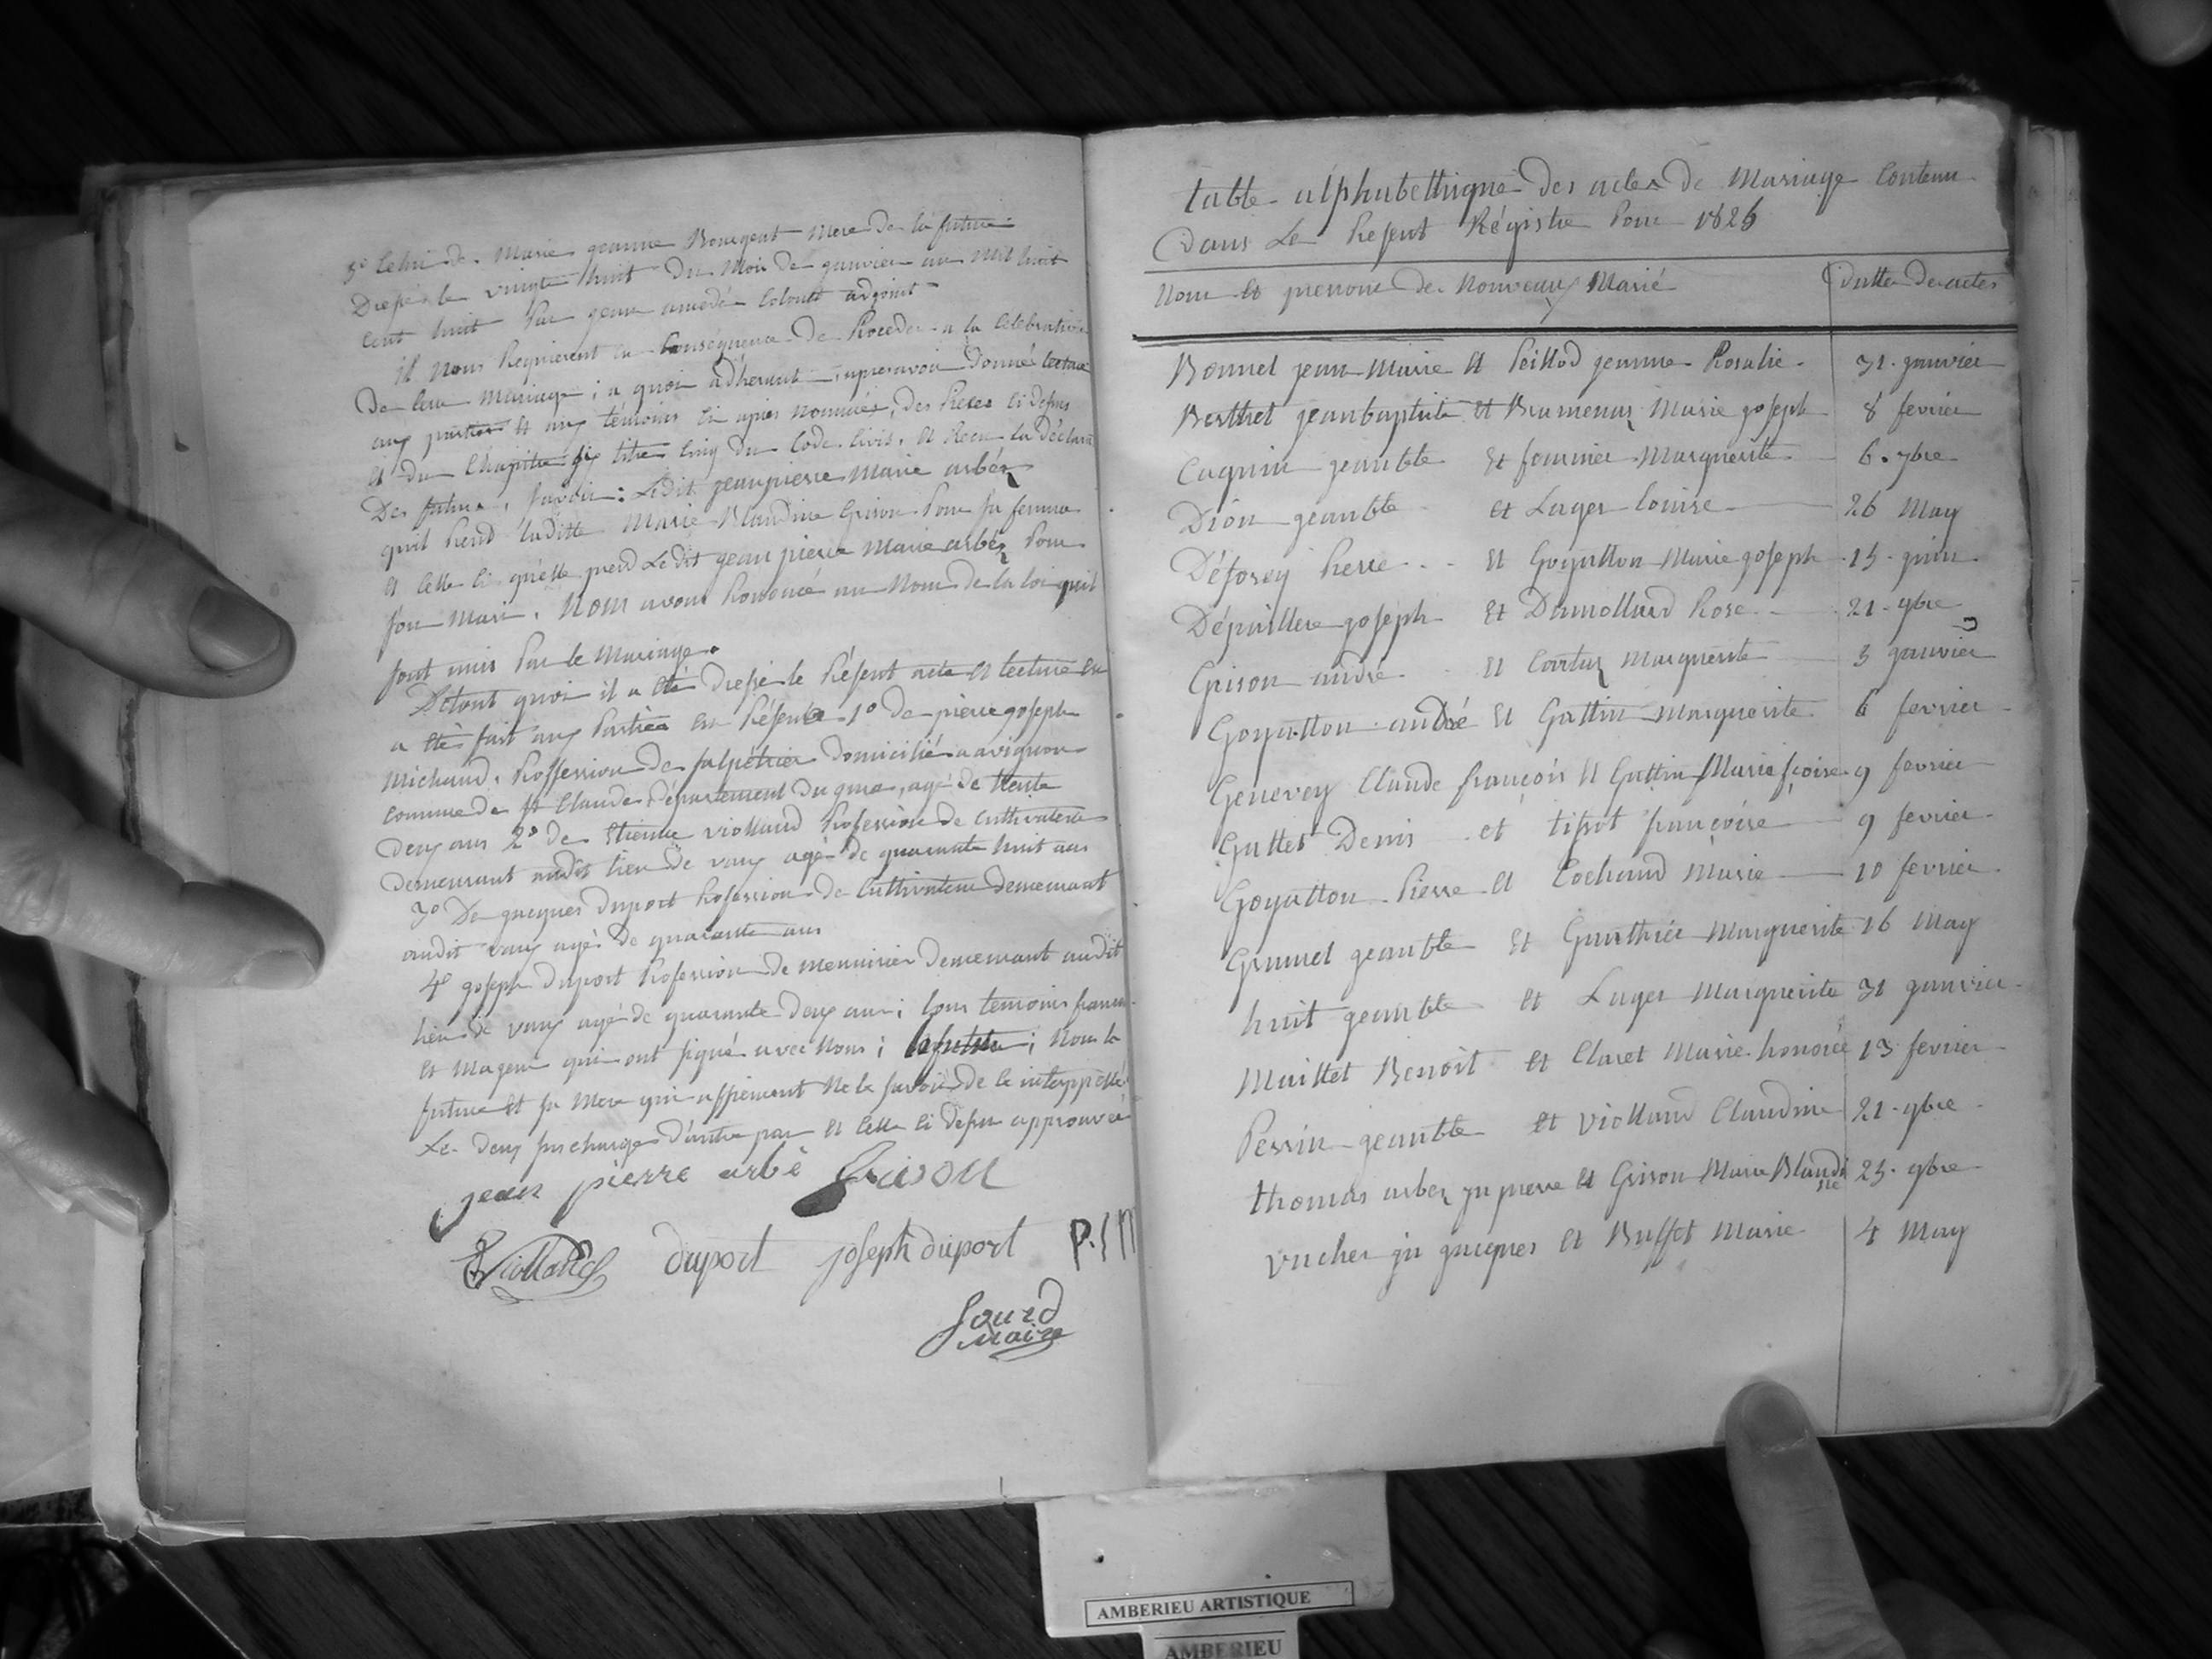 3º Celui de Marie jeanne Bourgeat Mere de la future
Dressé le vingte huit du Mois de janvier an Mil huit
cent huit Par jean amedée adjoint
il Nous Requierent en Conséquence de Proceder a la Celebration
De leur Mariage ; a quoi adherant, apresavoir Donné lecture
aux parties et aux témoins ci après nommés, des Pieces ci desus
et du Chapitre six titre cinq du Code Civil, et Recu la Déclara
Des futurs, savoir : Ledit jeanpierre Marie arbéz
qu'il Prend laditte Marie Blandine Grison Pour sa femme
et Celle ci qu'elle prend Ledit jean pierre Marie arbéz Pour
son Mari, Nous avons Prononcé au Nom de la loi quil
sont unis Par le Mariage.
Detout quoi il a été dressé le Présent acte et lecture en
a été fait aux Parties en Présence 1º de pierre joseph
Michaud, Proffession de salpétrier domicilié a avignon
commune de St Claude département du jura, agé de trente
deux ans 2º de Etienne viollaud Profession de cultivateur
demeurant audit lieu de vaux agé de quarante huit ans
3º De jacques duport Profession de Cultivateur demeurant
audit vaux agé de quarante ans
4º joseph duport Profession de menuisier demeurant audit
lieu de vaux agé de quarante deux ans ; tous temoins
et Mageur qui ont signé avec Nous ; ; Non la
future et sa Mere qui affirment Ne le savoir de ce interppellé
Le deux surcharges d'autre par et Celle ci desu approuvée
jean pierre arbé Grison
Viollaud duport joseph duport P.
Gourd
maire
table alphabetthique des actes de Mariage Contenu
Dans Le Présent Régistre Pour 1826
Nom et prenom de Nouveaux Marié Datte de actes
Bonnel jean Marie et Peillod jeanne Rosalie 31 janvier
Berthet jeanbaptiste et Marie joseph 8 fevrier
Cagnin jeanbte et fournier Marguerite 6. 7bre
Dion jeanbte et Lager Louise 26 May
Déforey Pierre et Goyatton Marie joseph 15 juin
Dépaillere joseph et Damolland Rose 21. 9bre
Grison andré et Marguerite 3 janvier
Goyatton andré et Gattin Marguerite 6 fevrier
Genevey Claude françois et Guttin Marie fçoise 9 fevrier
Guttet Denis et tissot françoise 9 fevrier
Goyatton Pierre et Cochaud Marie 10 fevrier
Grumel jeanbte et Gauthier Marguerite 16 May
huit jeanbte et Lager Marguerite 31 janvier
Maillet Benoit et Claret Marie honorée 13 fevrier
Perrin jeanbte et viollaud Claudine 21. 9bre
thomas arbez jn pierre et Grison Marie Blandi
ne 25. 9bre
vucher jn jacques et Buffet Marie 4 May
AMBERIEU ARTISTIQUE
AMBERIEU